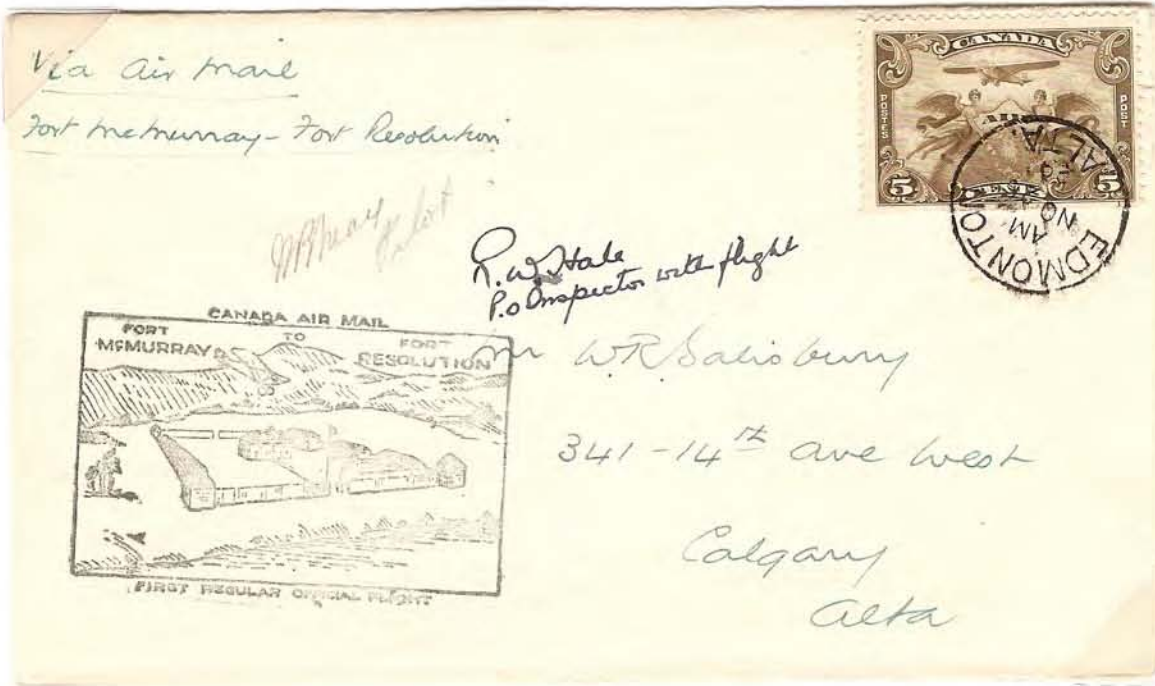 Via Air Mail
Fort McMurray - Fort Resolution
CANADA
POSTES
POST
5
CENTS
5
EDMONTON
ALTA.
AM
NO
Pilot
R.W. Hale
P.O Inspector with flight
CANADA AIR MAIL
FORT McMURRAY
TO
FORT RESOLUTION
FIRST REGULAR OFFICIAL FLIGHT
Mr W R Salisbury
341 - 14th Ave West
Calgary
Alta